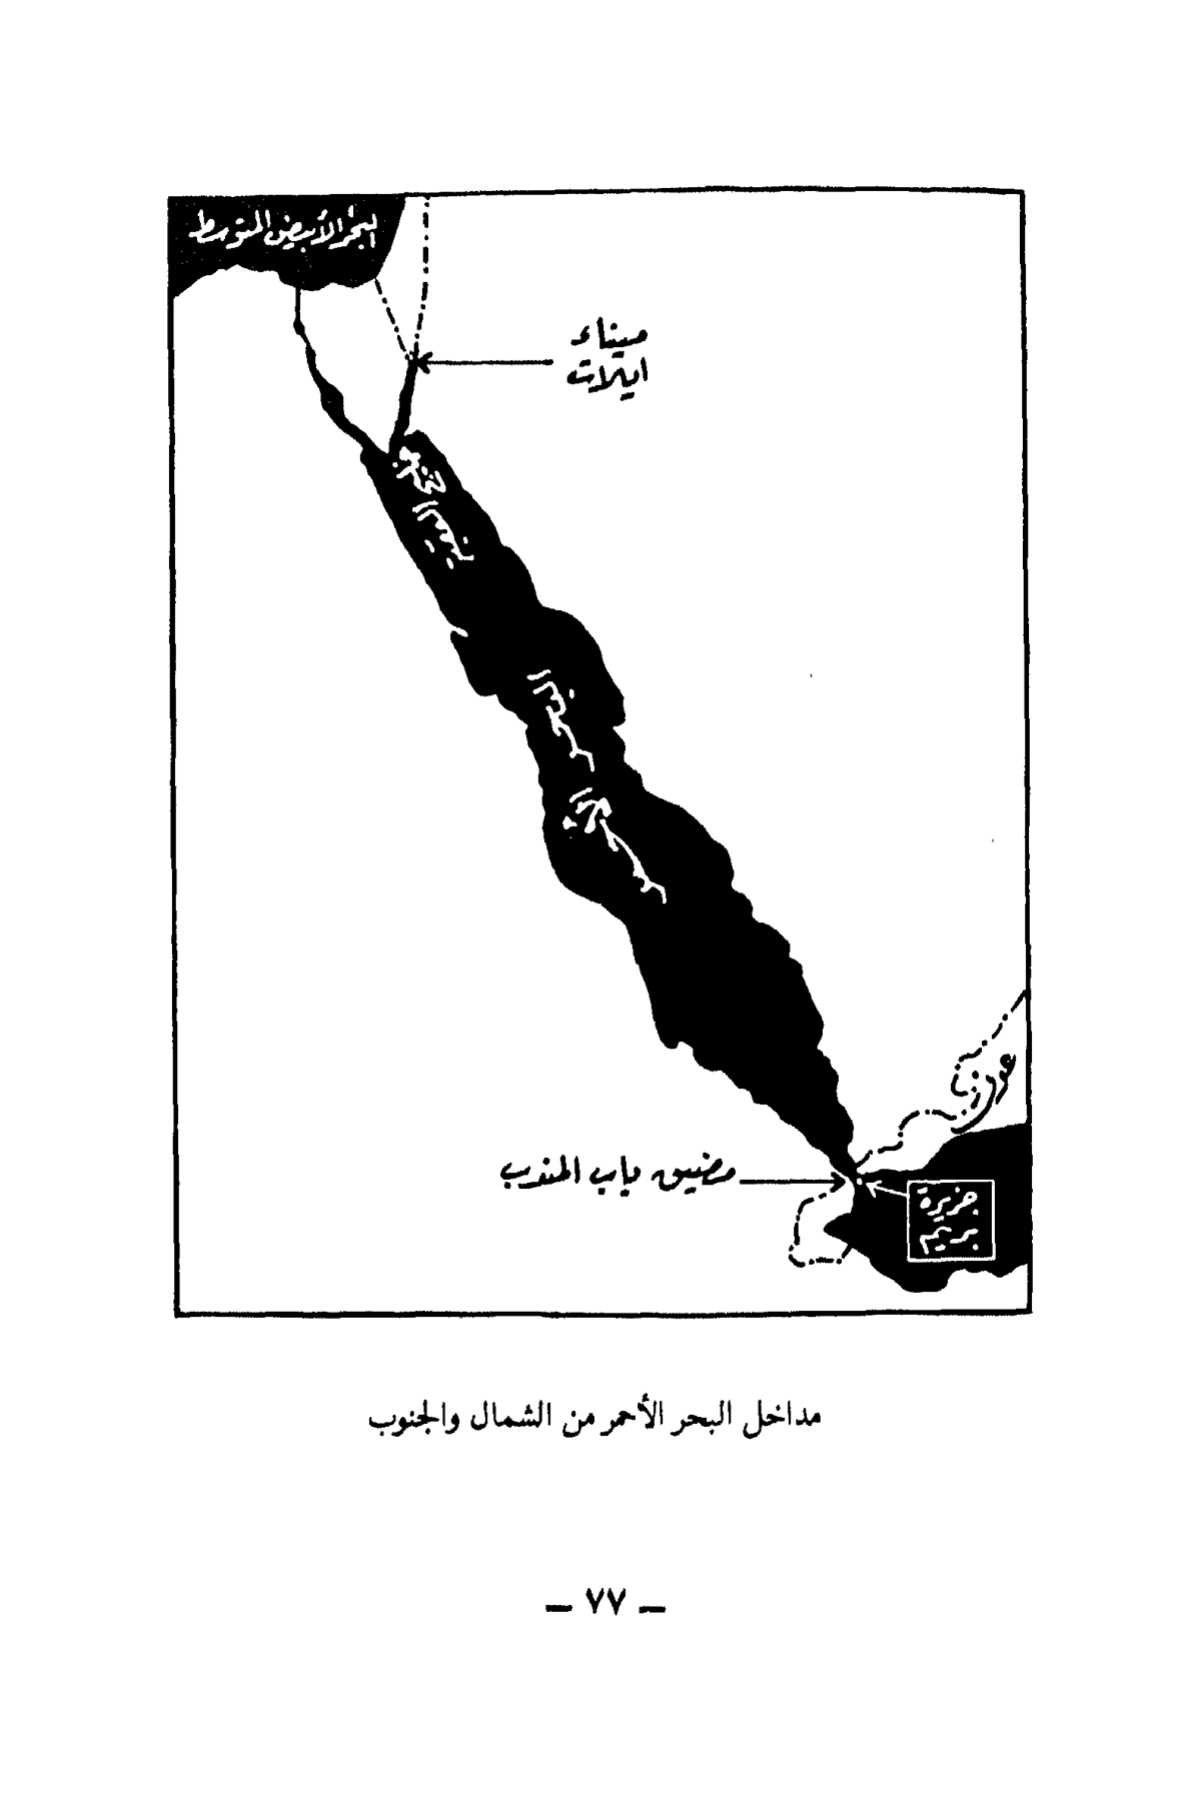 البحر الأبيض المتوسط
ميناء
ايلات
خليج
العقبة
البحر
الأحمر
مضيق باب المندب
جزيرة
بريم
مداخل البحر الأحمر من الشمال والجنوب
– ٧٧ –